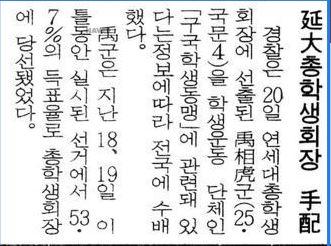 延大총학생회장 手配
경찰은 20일 연세대총학생
회장에 선출된 禹相虎군(25·
국문4)을 학생운동 단체인
「구국학생동맹」에 관련돼 있
다는정보에따라 전국에 수배
했다.
禹군은 지난 18, 19일 이
틀동안 실시된 선거에서 53·
7%의 득표율로 총학생회장
에 당선됐었다.